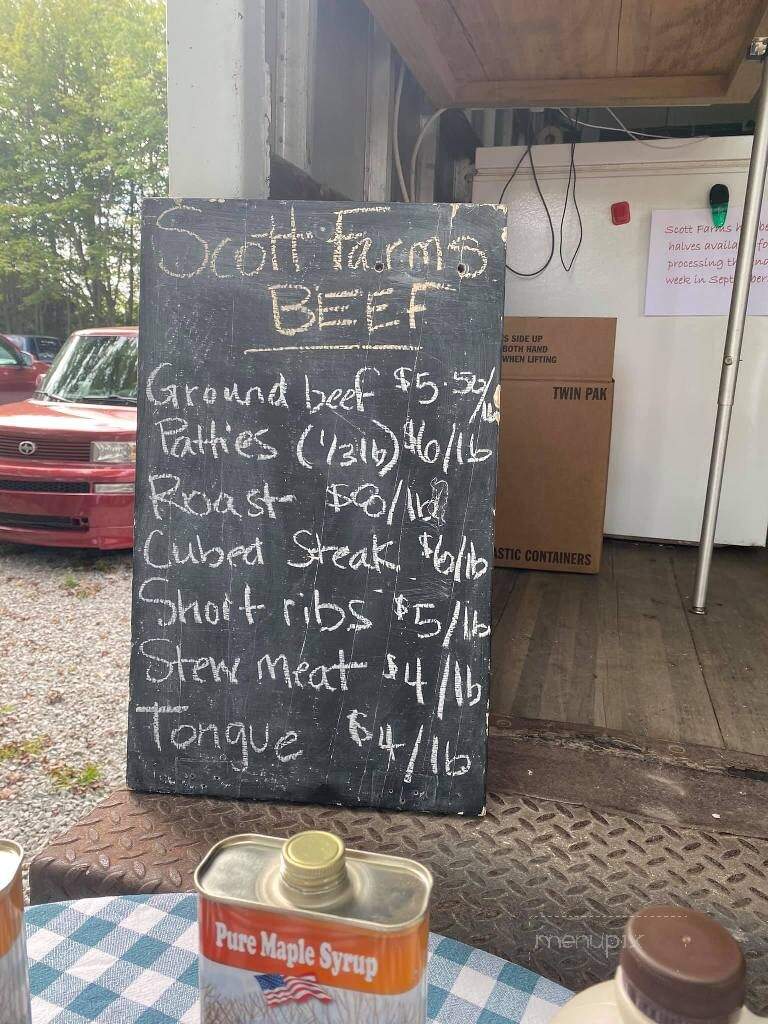 Scott Farms
BEEF
Ground beef $5.50/lb
Patties (1/3lb) $6/lb
Roast $8/lb
Cubed Steak $6/lb
Short ribs $5/lb
Stew meat $4/lb
Tongue $4/lb
Scott Farms
halves
processing
week in
S SIDE UP
BOTH HAND
WHEN LIFTING
TWIN PAK
ASTIC CONTAINERS
Pure Maple Syrup
menupix